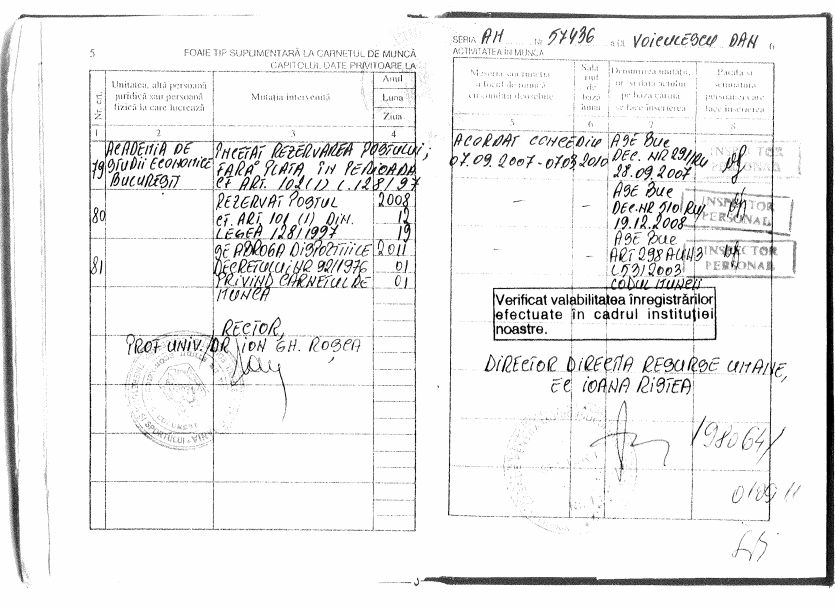 5 FOAIE TIP SUPLIMENTARĂ LA CARNETUL DE MUNCĂ
CAPITOLUL DATE PRIVITOARE LA
Nr. crt.
Unitatea, altă persoană
juridică sau persoană
fizică la care lucrează
Mutația intervenită
Anul
Luna
Ziua
1 2 3 4
79
ACADEMIA DE
STUDII ECONOMICE
BUCUREȘTI
ÎNCETAT REZERVAREA POSTULUI;
FARĂ PLATA ÎN PERIOADA
CF ART. 102(1) L.128/97
80
REZERVAT POSTUL
CF. ART. 101 (1) DIN.
LEGEA 128/1997
2008
12
19
81
SE ABROGA DISPOZITIILE
DECRETULUI NR 92/1976
PRIVIND CARNETUL DE
MUNCA
2011
01
01
RECTOR,
PROF UNIV. DR ION GH. ROȘCA
SERIA AH Nr. 57436 a lui VOICULESCU DAN 6
ACTIVITATEA ÎN MUNCĂ
Meseria sau funcția
și locul de muncă
cu condiții deosebite
Salariul
de
bază
lunar
Denumirea unității,
nr. și data actului
pe baza căruia
se face înscrierea
Parafa și
semnătura
persoanei care
face înscrierea
5 6 7 8
ACORDAT CONCEDIU
07.09.2007-07.03.2010
ASE BUC
DEC. NR 291/RU
28.09.2007
INSPECTOR
PERSONAL
- -
ASE BUC
DEC. NR 510/RU
19.12.2008
INSPECTOR
PERSONAL
- -
ASE BUC
ART 298 ALIN3
L53/2003
CODUL MUNCII
INSPECTOR
PERSONAL
Verificat valabilitatea înregistrărilor
efectuate în cadrul instituției
noastre.
DIRECTOR DIRECTIA RESURSE UMANE,
EC IOANA RISTEA
198064/